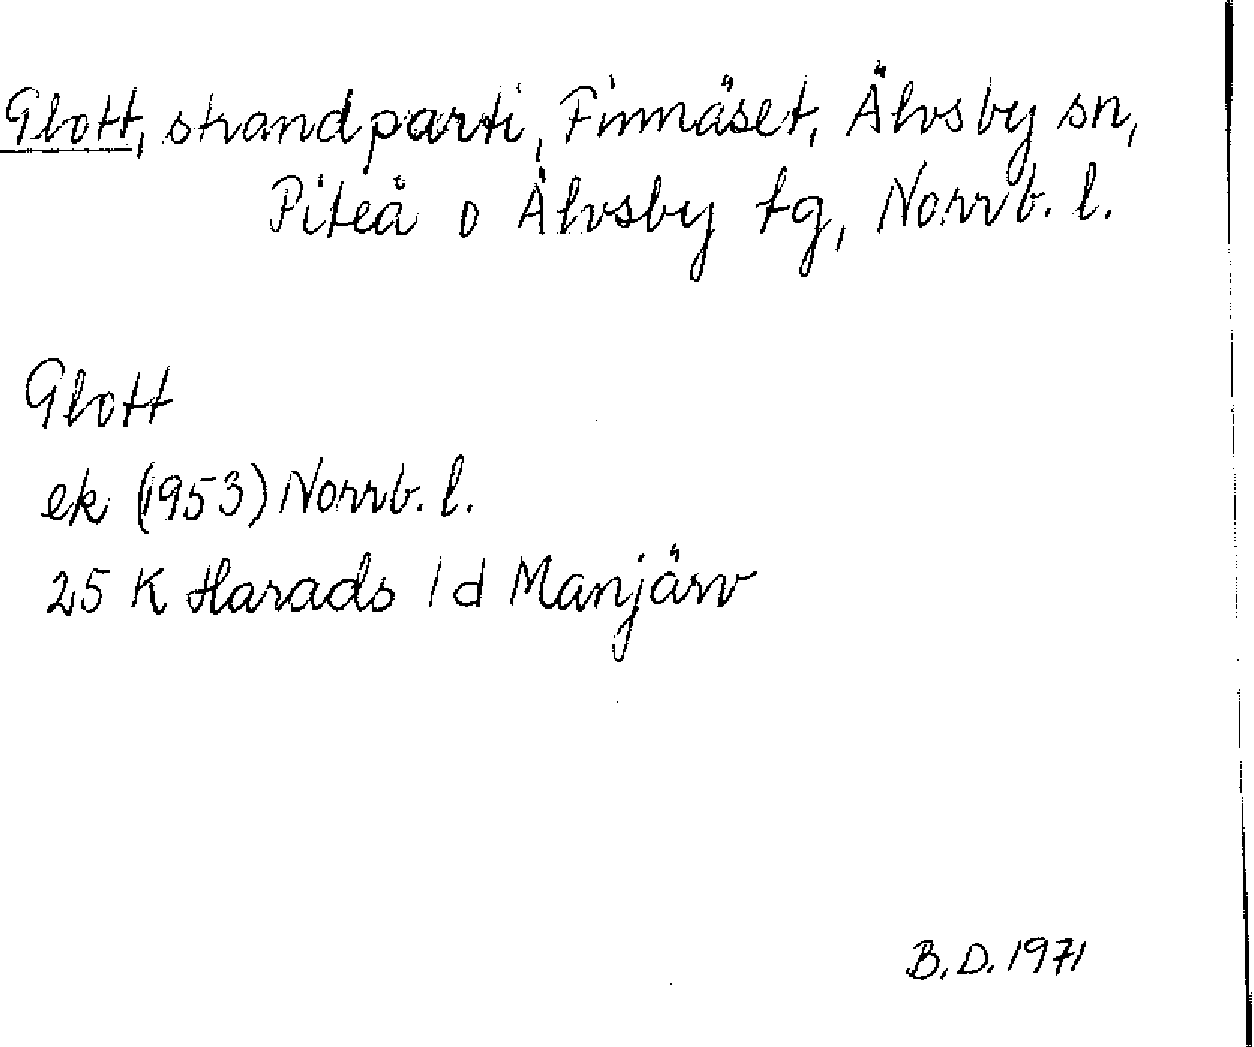 Glott, strandparti, Finnäset, Älvsby sn,
Piteå o Älvsby tg, Norrb. l.
Glott
ek (1953) Norrb. l.
25 K Harads 1 d Manjärv
B.D. 1971